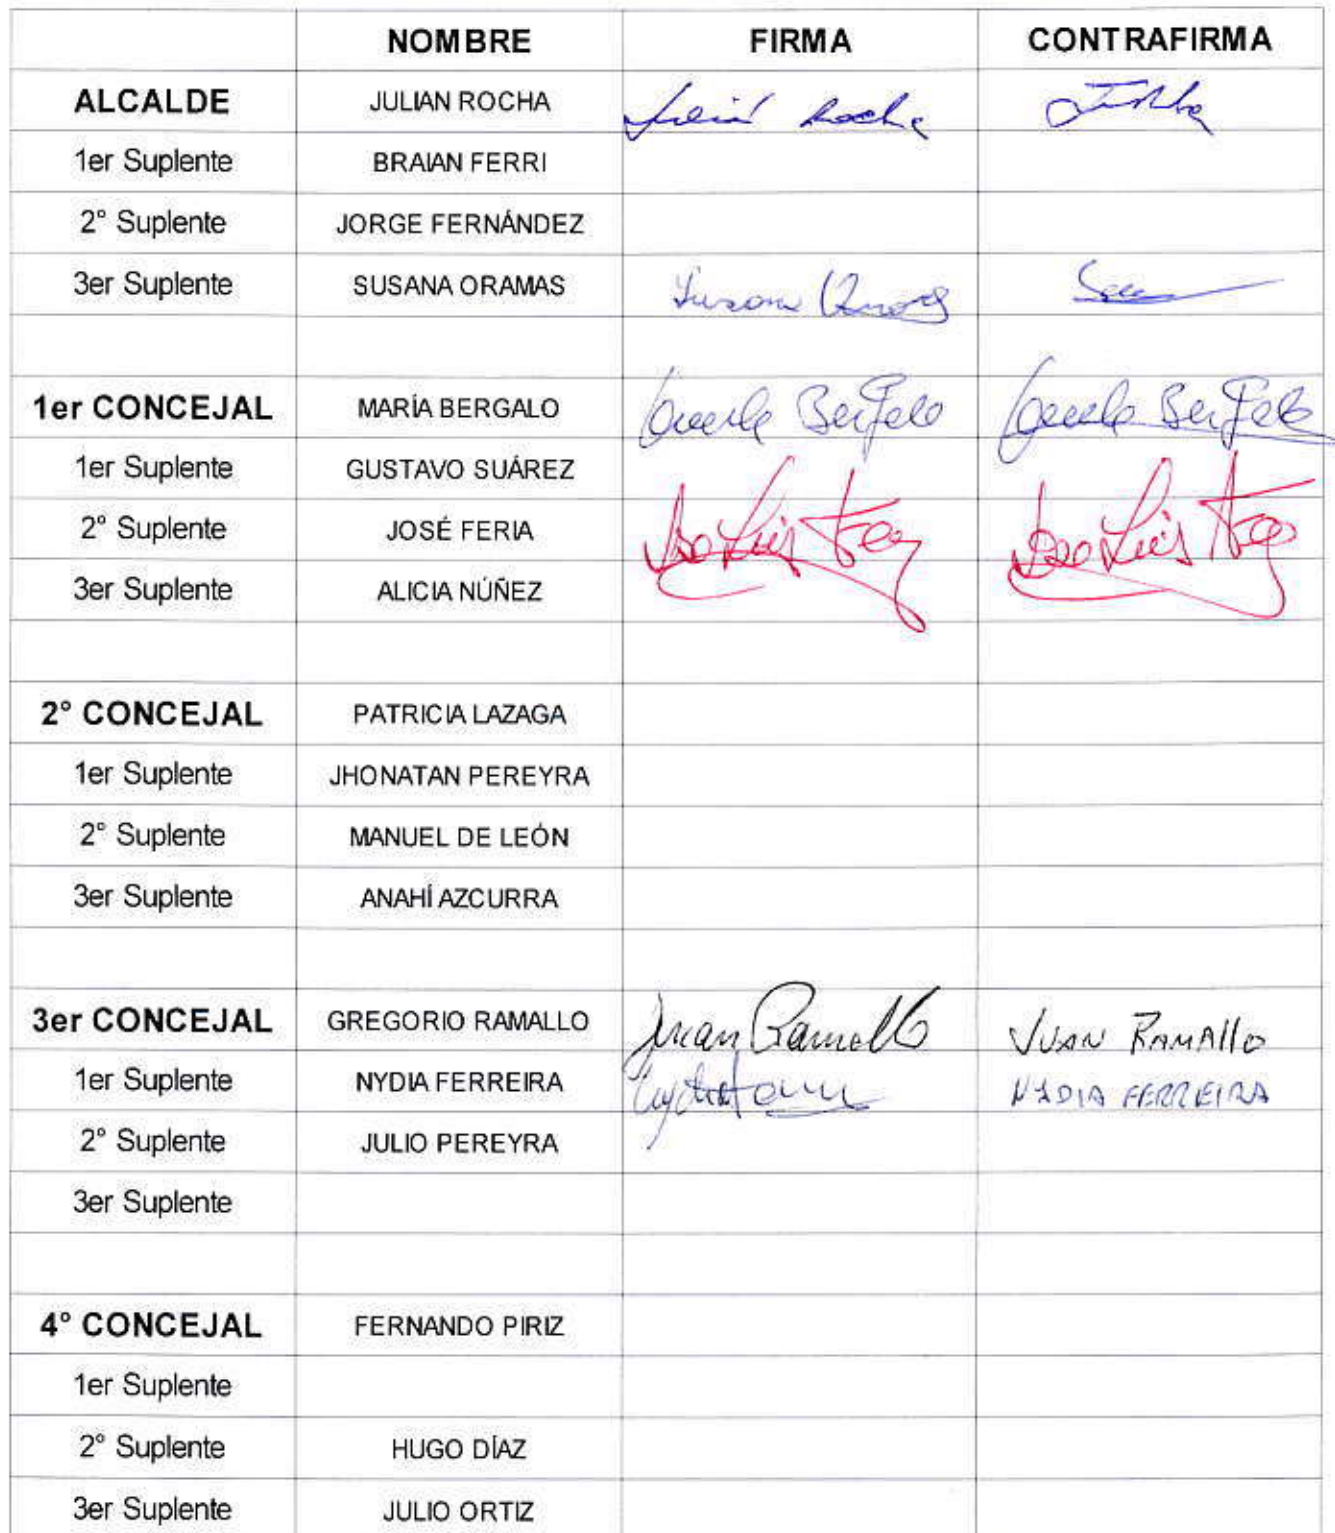 NOMBRE FIRMA CONTRAFIRMA
ALCALDE JULIAN ROCHA Julián Rocha
1er Suplente BRAIAN FERRI
2° Suplente JORGE FERNÁNDEZ
3er Suplente SUSANA ORAMAS Susana
1er CONCEJAL MARÍA BERGALO Bergalo Bergalo
1er Suplente GUSTAVO SUÁREZ
2° Suplente JOSÉ FERIA Jose Luis Jose Luis
3er Suplente ALICIA NÚÑEZ
2° CONCEJAL PATRICIA LAZAGA
1er Suplente JHONATAN PEREYRA
2° Suplente MANUEL DE LEÓN
3er Suplente ANAHÍ AZCURRA
3er CONCEJAL GREGORIO RAMALLO Juan Ramallo JUAN RAMAllO
1er Suplente NYDIA FERREIRA NYDIA FERREIRA
2° Suplente JULIO PEREYRA
3er Suplente
4° CONCEJAL FERNANDO PIRIZ
1er Suplente
2° Suplente HUGO DÍAZ
3er Suplente JULIO ORTIZ